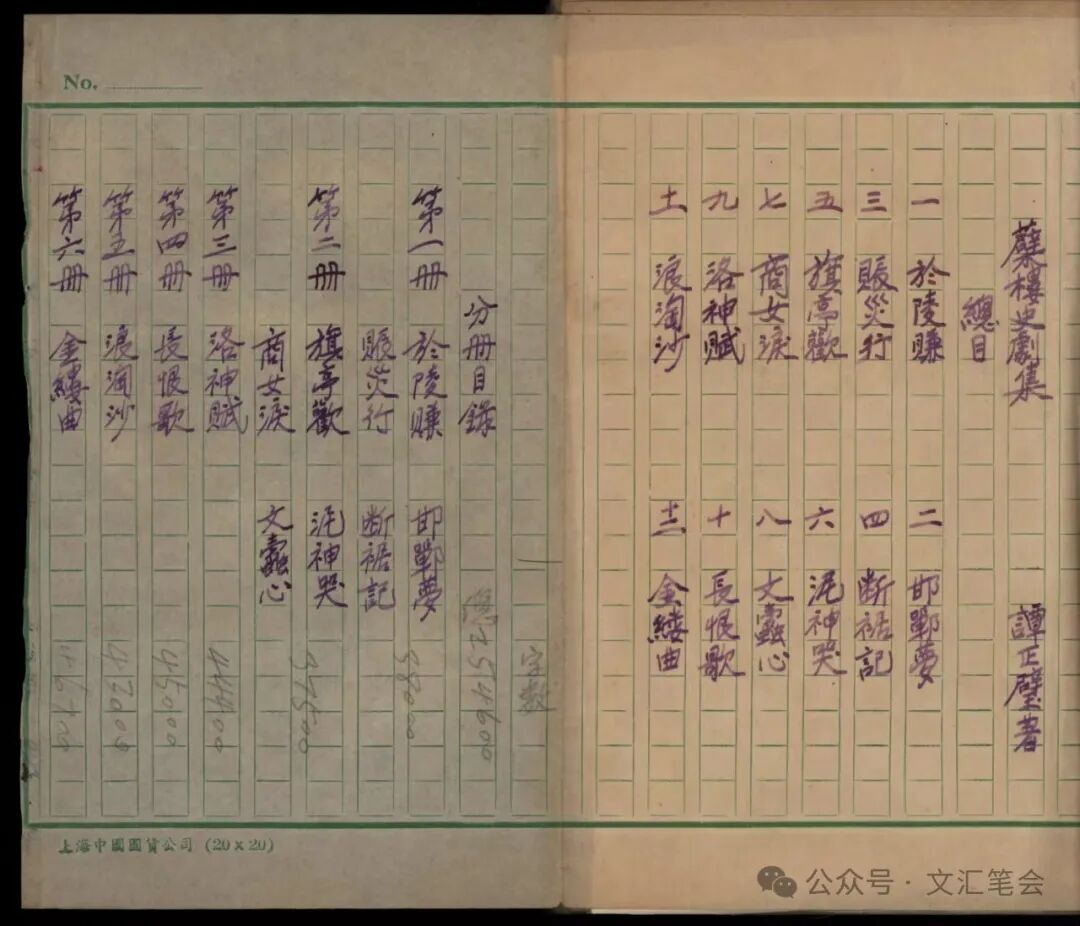 蘗樓史劇集 譚正璧著
總目
一 於陵賺 二 邯鄲夢
三 賑災行 四 断裾記
五 旗亭歡 六 泥神哭
七 商女淚 八 文蠹心
九 洛神賦 十 長恨歌
十一 浪淘沙 十二 金縷曲
No.
字数
分册目錄 254600
第一册 於陵賺 邯鄲夢 38000
賑災行 断裾記
第二册 旗亭歡 泥神哭 37500
商女淚 文蠹心
第三册 洛神賦 44400
第四册 長恨歌 45000
第五册 浪淘沙 43000
第六册 金縷曲 46700
上海中國國貨公司 (20×20)
公众号·文汇笔会